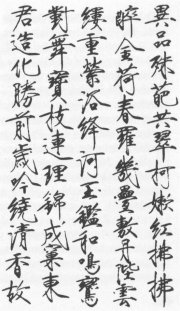 異品殊葩共翠柯嫩紅拂拂
醉金荷春羅幾疊敷丹陛雲
縷重縈浴絳河玉鑑和鳴鸞
對舞寶枝連理錦成窠東
君造化勝前歲吟繞清香故